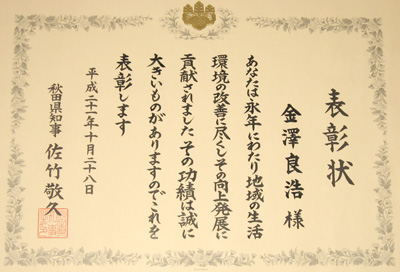 表彰状
金澤良浩 様
あなたは永年にわたり地域の生活
環境の改善に尽くしその向上発展に
貢献されました その功績は誠に
大きいものがありますのでこれを
表彰します
平成二十一年十月二十八日
秋田県知事 佐竹敬久